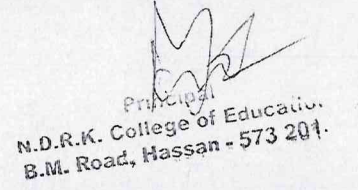 Principal
N.D.R.K. College of Education
B.M. Road, Hassan - 573 201.